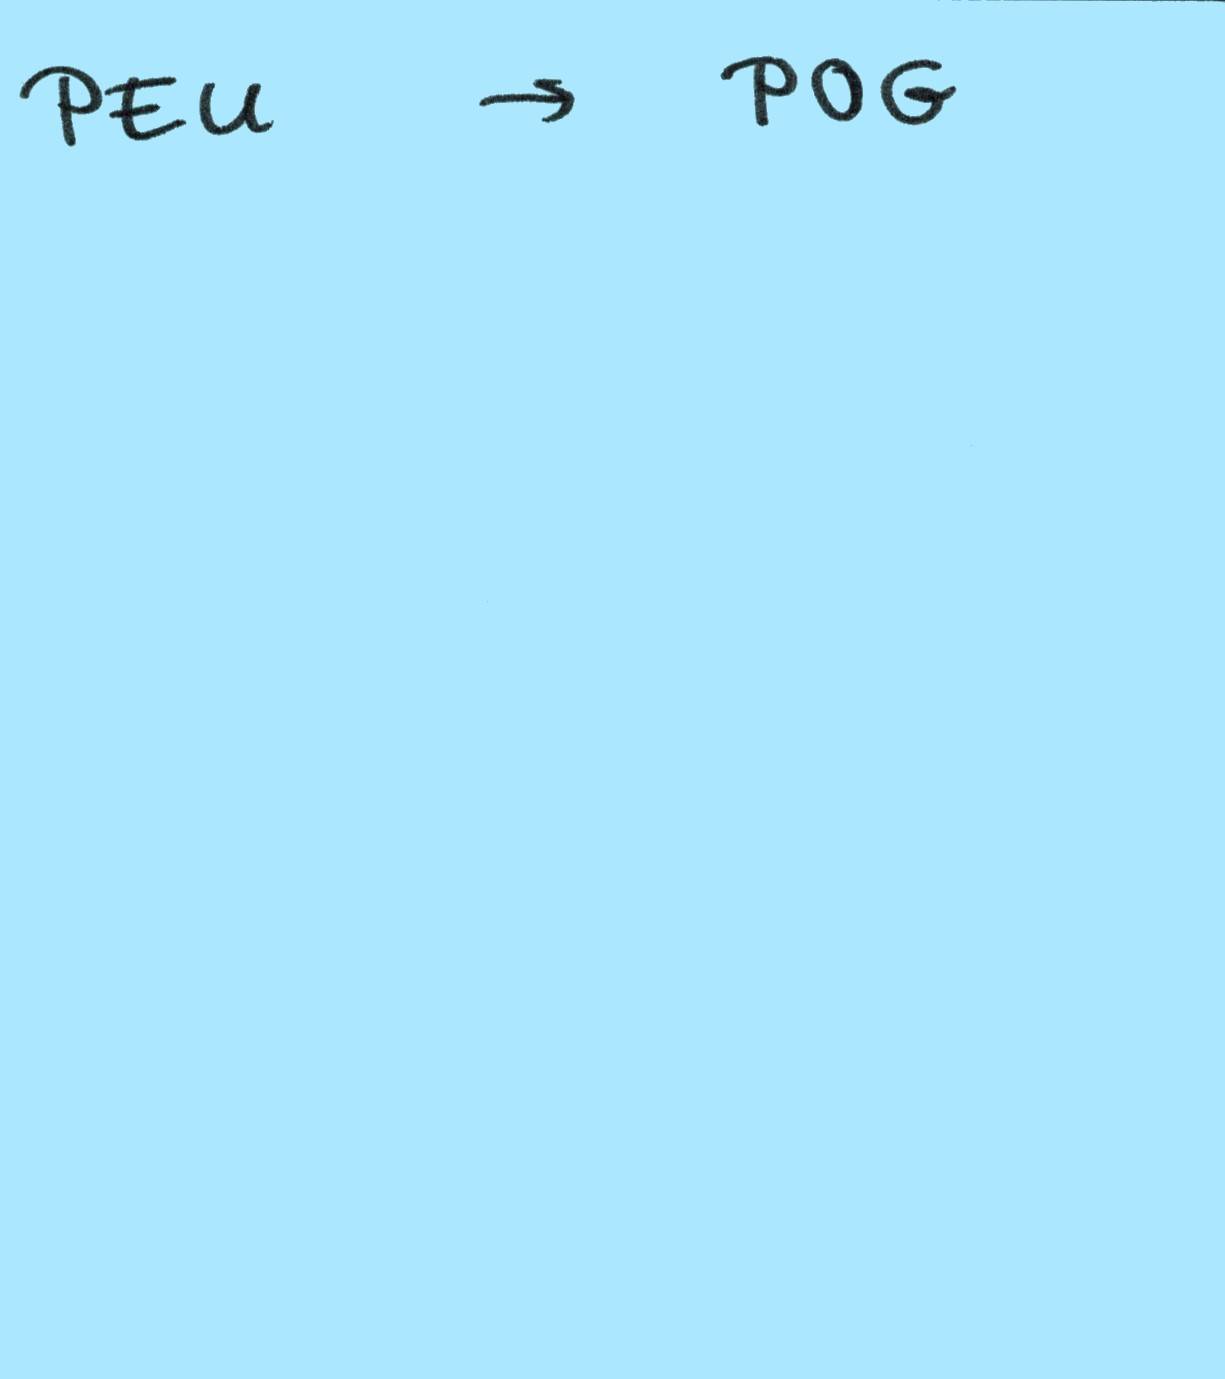 PEU → POG